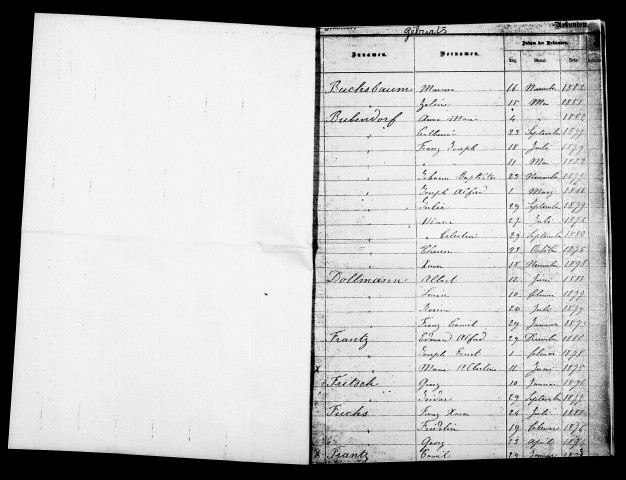 Geburts Urkunden.
Zunamen. Vornamen. Datum der Urkunden.
Tag. Monat. Jahr.
Buchsbaum Marcus 16 November 1882
" 15 Mai 1881
Bubendorf Anna Maria 4 " 1882
" Catharina 23 September 1877
" Franz Joseph 18 Juli 1879
" " " 11 Mai 1882
" Johann Baptiste 23 November 1879
" Joseph Alfred 1 März 1881
" Julie 29 September 1879
" 27 Juli 1875
" " Celestine 29 September 1880
" Oktober 1875
" Xaver 18 November 1878
Dollmann Albert 12 Juni 1881
" Louise 10 Februar 1877
" Rosina 24 Juli 1879
" Franz Camil 29 Januar 1873
Frantz Edouard Alfred 29 Dezember 1880
" Joseph Ernst 1 Februar 1878
x " Maria Albertine 11 Juni 1875
Fritsch Georg 10 Januar 1876
" Isidor 29 September 1877
Fuchs Franz Xaver 24 Juli 1881
" Fridolin 19 Februar 1876
" Georg 23 April 1874
x Frantz Camil 29 Januar 1873